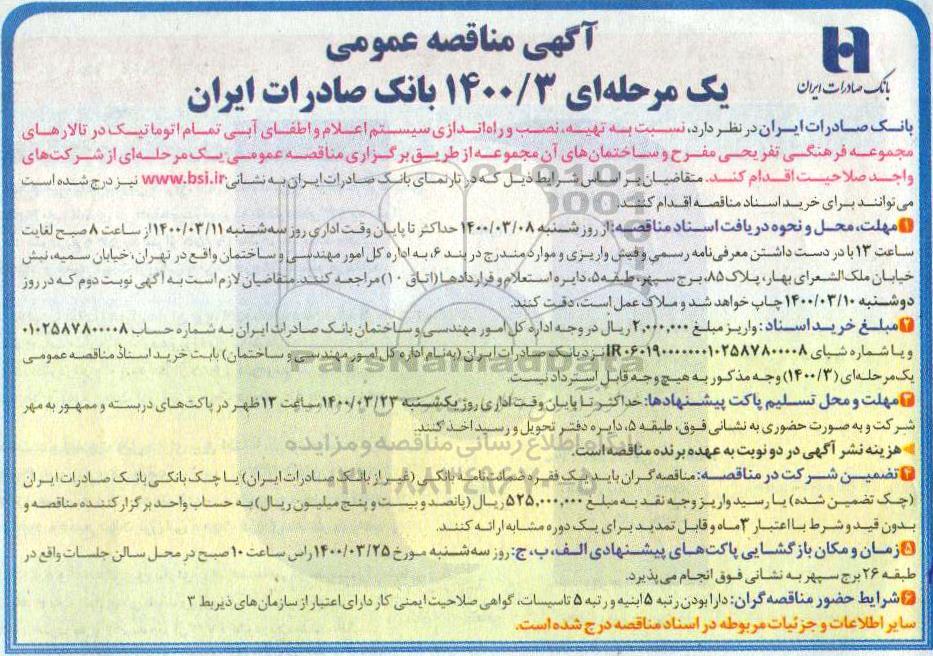 آگهی مناقصه عمومی
یک مرحله‌ای ۱۴۰۰/۳ بانک صادرات ایران
بانک صادرات ایران
بانک صادرات ایران در نظر دارد، نسبت به تهیه، نصب و راه‌اندازی سیستم اعلام و اطفای آبی تمام اتوماتیک در تالارهای
مجموعه فرهنگی تفریحی مفرح و ساختمان‌های آن مجموعه از طریق برگزاری مناقصه عمومی یک مرحله‌ای از شرکت‌های
واجد صلاحیت اقدام کند. متقاضیان بر اساس شرایط ذیل که در تارنمای بانک صادرات ایران به نشانی www.bsi.ir نیز درج شده است
می‌توانند برای خرید اسناد مناقصه اقدام کنند:
۱ مهلت، محل و نحوه دریافت اسناد مناقصه: از روز شنبه ۱۴۰۰/۰۳/۰۸ حداکثر تا پایان وقت اداری روز سه‌شنبه ۱۴۰۰/۰۳/۱۱ از ساعت ۸ صبح لغایت
ساعت ۱۳ با در دست داشتن معرفی‌نامه رسمی و فیش واریزی و موارد مندرج در بند ۶، به اداره کل امور مهندسی و ساختمان واقع در تهران، خیابان سمیه، نبش
خیابان ملک‌الشعرای بهار، پلاک ۸۵، برج سپهر، طبقه ۵، دایره استعلام و قراردادها (اتاق ۱۰) مراجعه کنند. متقاضیان لازم است به آگهی نوبت دوم که در روز
دوشنبه ۱۴۰۰/۰۳/۱۰ چاپ خواهد شد و ملاک عمل است، دقت کنند.
۲ مبلغ خرید اسناد: واریز مبلغ ۲,۰۰۰,۰۰۰ ریال در وجه اداره کل امور مهندسی و ساختمان بانک صادرات ایران به شماره حساب ۰۱۰۲۵۸۷۸۰۰۰۰۸
و یا شماره شبای IR۰۶۰۱۹۰۰۰۰۰۰۰۱۰۲۵۸۷۸۰۰۰۰۸ نزد بانک صادرات ایران (به‌نام اداره کل امور مهندسی و ساختمان) بابت خرید اسناد مناقصه عمومی
یک مرحله‌ای (۱۴۰۰/۳) وجه مذکور به هیچ وجه قابل استرداد نیست.
۳ مهلت و محل تسلیم پاکت پیشنهادها: حداکثر تا پایان وقت اداری روز یکشنبه ۱۴۰۰/۰۳/۲۳ ساعت ۱۳ ظهر در پاکت‌های دربسته و ممهور به مهر
شرکت و به صورت حضوری به نشانی فوق، طبقه ۵، دایره دفتر تحویل و رسید اخذ کنند.
هزینه نشر آگهی در دو نوبت به عهده برنده مناقصه است.
۴ تضمین شرکت در مناقصه: مناقصه‌گران باید یک فقره ضمانت‌نامه بانکی (غیر از بانک صادرات ایران) یا چک بانکی بانک صادرات ایران
(چک تضمین شده) یا رسید واریز وجه نقد به مبلغ ۵۲۵,۰۰۰,۰۰۰ ریال (پانصد و بیست و پنج میلیون ریال) به حساب واحد برگزار کننده مناقصه و
بدون قید و شرط با اعتبار ۳ ماه و قابل تمدید برای یک دوره مشابه ارائه کنند.
۵ زمان و مکان بازگشایی پاکت‌های پیشنهادی الف، ب، ج: روز سه‌شنبه مورخ ۱۴۰۰/۰۳/۲۵ راس ساعت ۱۰ صبح در محل سالن جلسات واقع در
طبقه ۲۶ برج سپهر به نشانی فوق انجام می‌پذیرد.
۶ شرایط حضور مناقصه‌گران: دارا بودن رتبه ۵ ابنیه و رتبه ۵ تاسیسات، گواهی صلاحیت ایمنی کار دارای اعتبار از سازمان‌های ذیربط ۳
سایر اطلاعات و جزئیات مربوطه در اسناد مناقصه درج شده است.
ParsNamadData
پایگاه اطلاع رسانی مناقصه و مزایده